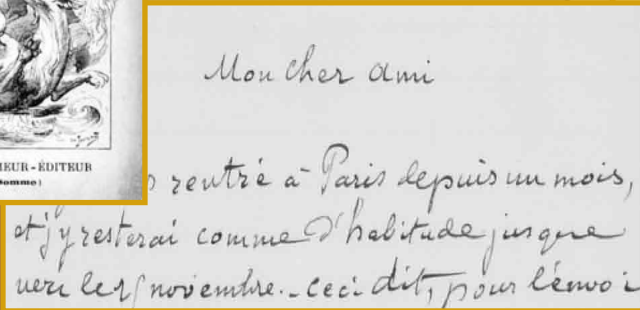 MEUR-ÉDITEUR
Somme)
Mon Cher Ami
s rentré à Paris depuis un mois,
et j'y resterai comme d'habitude jusque
vers le novembre. _ Ceci dit, pour l'envoi